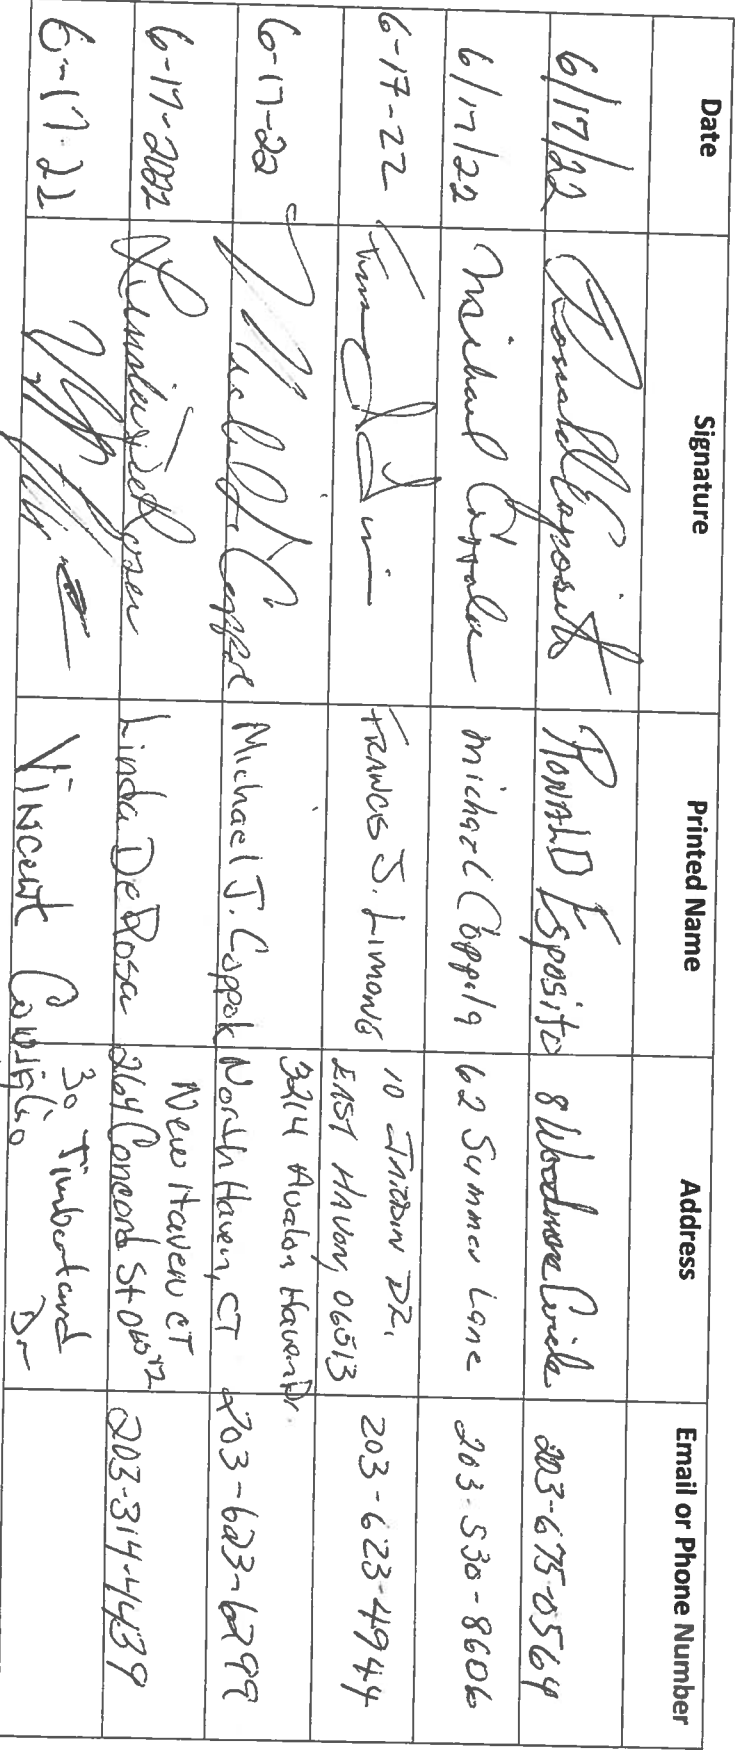 Date Signature Printed Name Address Email or Phone Number
6/17/22 Ronald Esposito RONALD Esposito 8 Woodmore Circle 203-675-0564
6/17/22 Michael Coppola michael Coppola 62 Summer Lane 203-530-8606
6-17-22 FRANCIS J. Limone 10 DR,
EAST HAVEN, 06513 203-623-4944
6-17-22 Michael J. Coppola Michael J. Coppola 3214 Avalon Haven Dr.
North Haven, CT 203-623-6299
6-17-2022 Linda DeRosa Linda DeRosa New Haven CT
264 Concord St 06512 203-314-4439
6-17-22 Vincent 30 Timberland
Dr